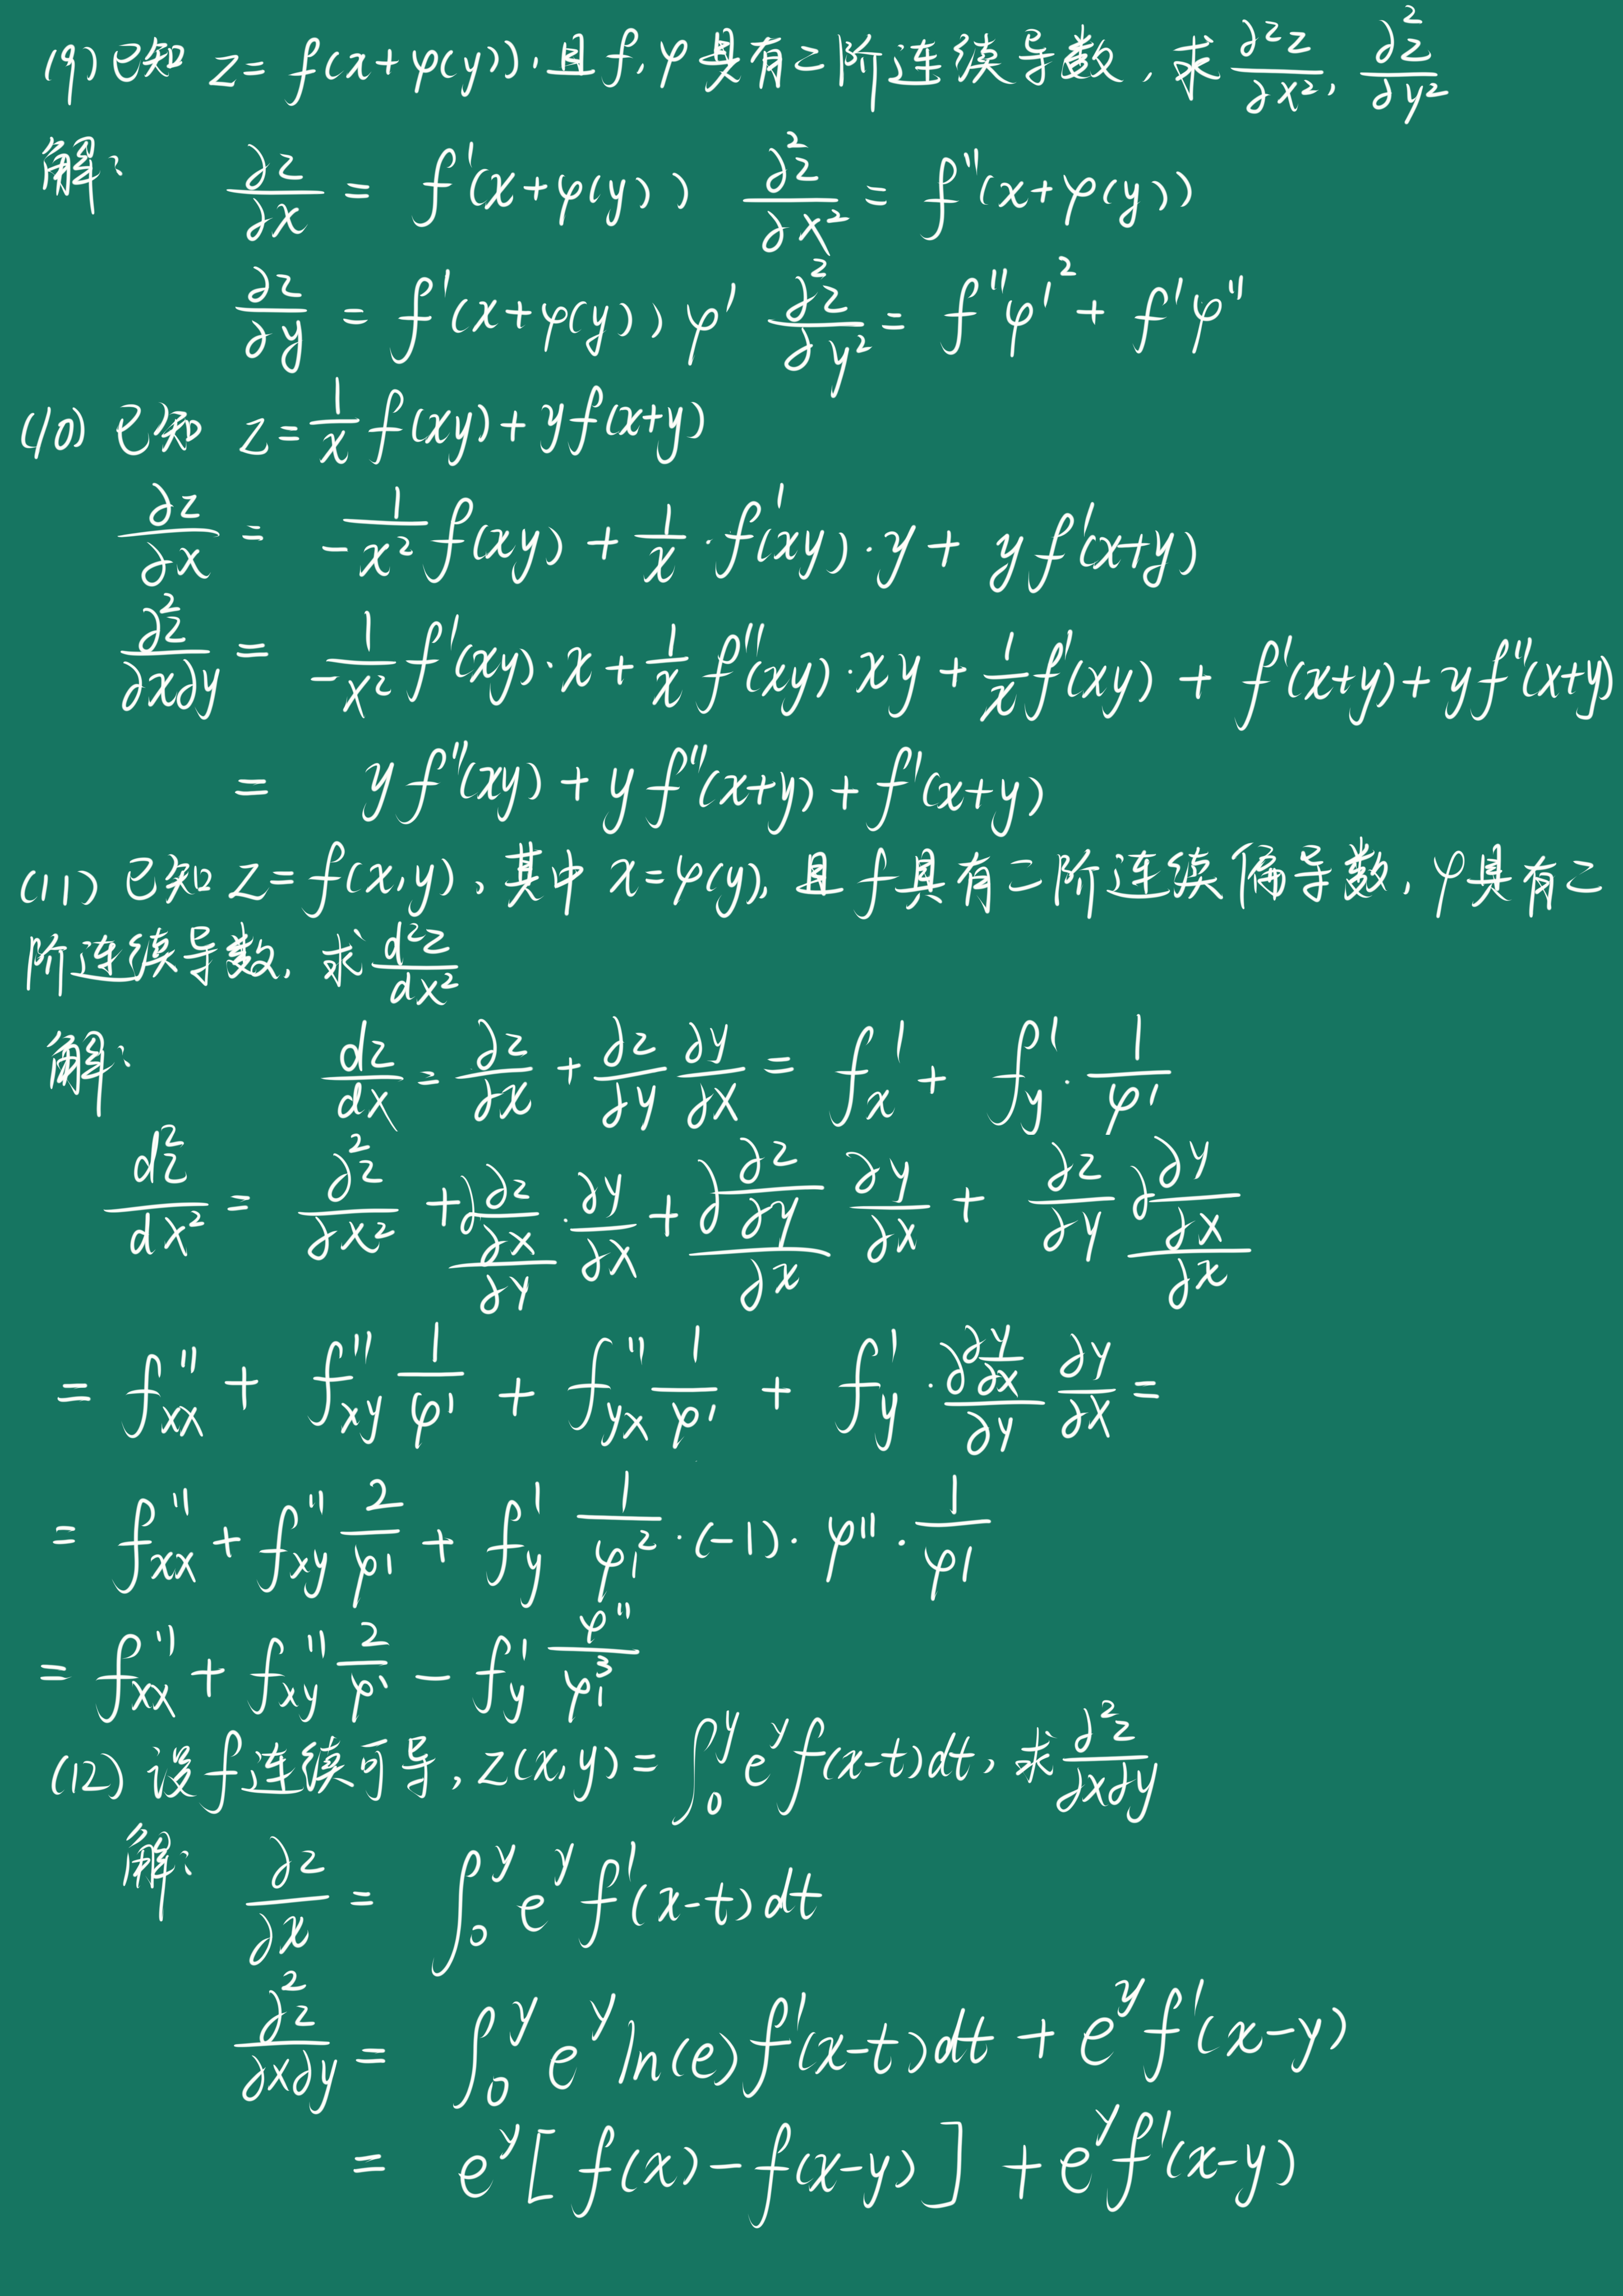 (9) 已知 z = f(x+φ(y)), 且 f, φ 具有二阶连续导数, 求 ∂²z/∂x², ∂²z/∂y²
解: ∂z/∂x = f'(x+φ(y)) ∂²z/∂x² = f''(x+φ(y))
∂z/∂y = f'(x+φ(y))φ' ∂²z/∂y² = f''φ'² + f'φ''
(10) 已知 z = 1/x f(xy) + yf(x+y)
∂z/∂x = 1/-x² f(xy) + 1/x · f'(xy) · y + yf'(x+y)
∂²z/∂x∂y = 1/-x² f'(xy) · x + 1/x f''(xy) · xy + 1/x f'(xy) + f'(x+y) + yf''(x+y)
= yf''(xy) + yf''(x+y) + f'(x+y)
(11) 已知 z = f(x,y), 其中 x = φ(y), 且 f 具有二阶连续偏导数, φ具有二
阶连续导数, 求 d²z/dx²
解: dz/dx = ∂z/∂x + ∂z/∂y ∂y/∂x = f'x + f'y · 1/φ'
d²z/dx² = ∂²z/∂x² + ∂(∂z/∂x)/∂y · ∂y/∂x + ∂(∂z/∂y)/∂x ∂y/∂x + ∂z/∂y ∂(∂y/∂x)/∂x
= f''xx + f''xy 1/φ' + f''yx 1/φ' + f'y · ∂(∂y/∂x)/∂y ∂y/∂x =
= f''xx + f''xy 2/φ' + f'y 1/φ'² · (-1) · φ'' · 1/φ'
= f''xx + f''xy 2/φ' - f'y φ''/φ'³
(12) 设 f 连续可导, z(x,y) = ∫₀^y e^y f(x-t)dt, 求 ∂²z/∂x∂y
解: ∂z/∂x = ∫₀^y e^y f'(x-t)dt
∂²z/∂x∂y = ∫₀^y e^y ln(e) f'(x-t)dt + e^y f'(x-y)
= e^y [f(x) - f(x-y)] + e^y f'(x-y)